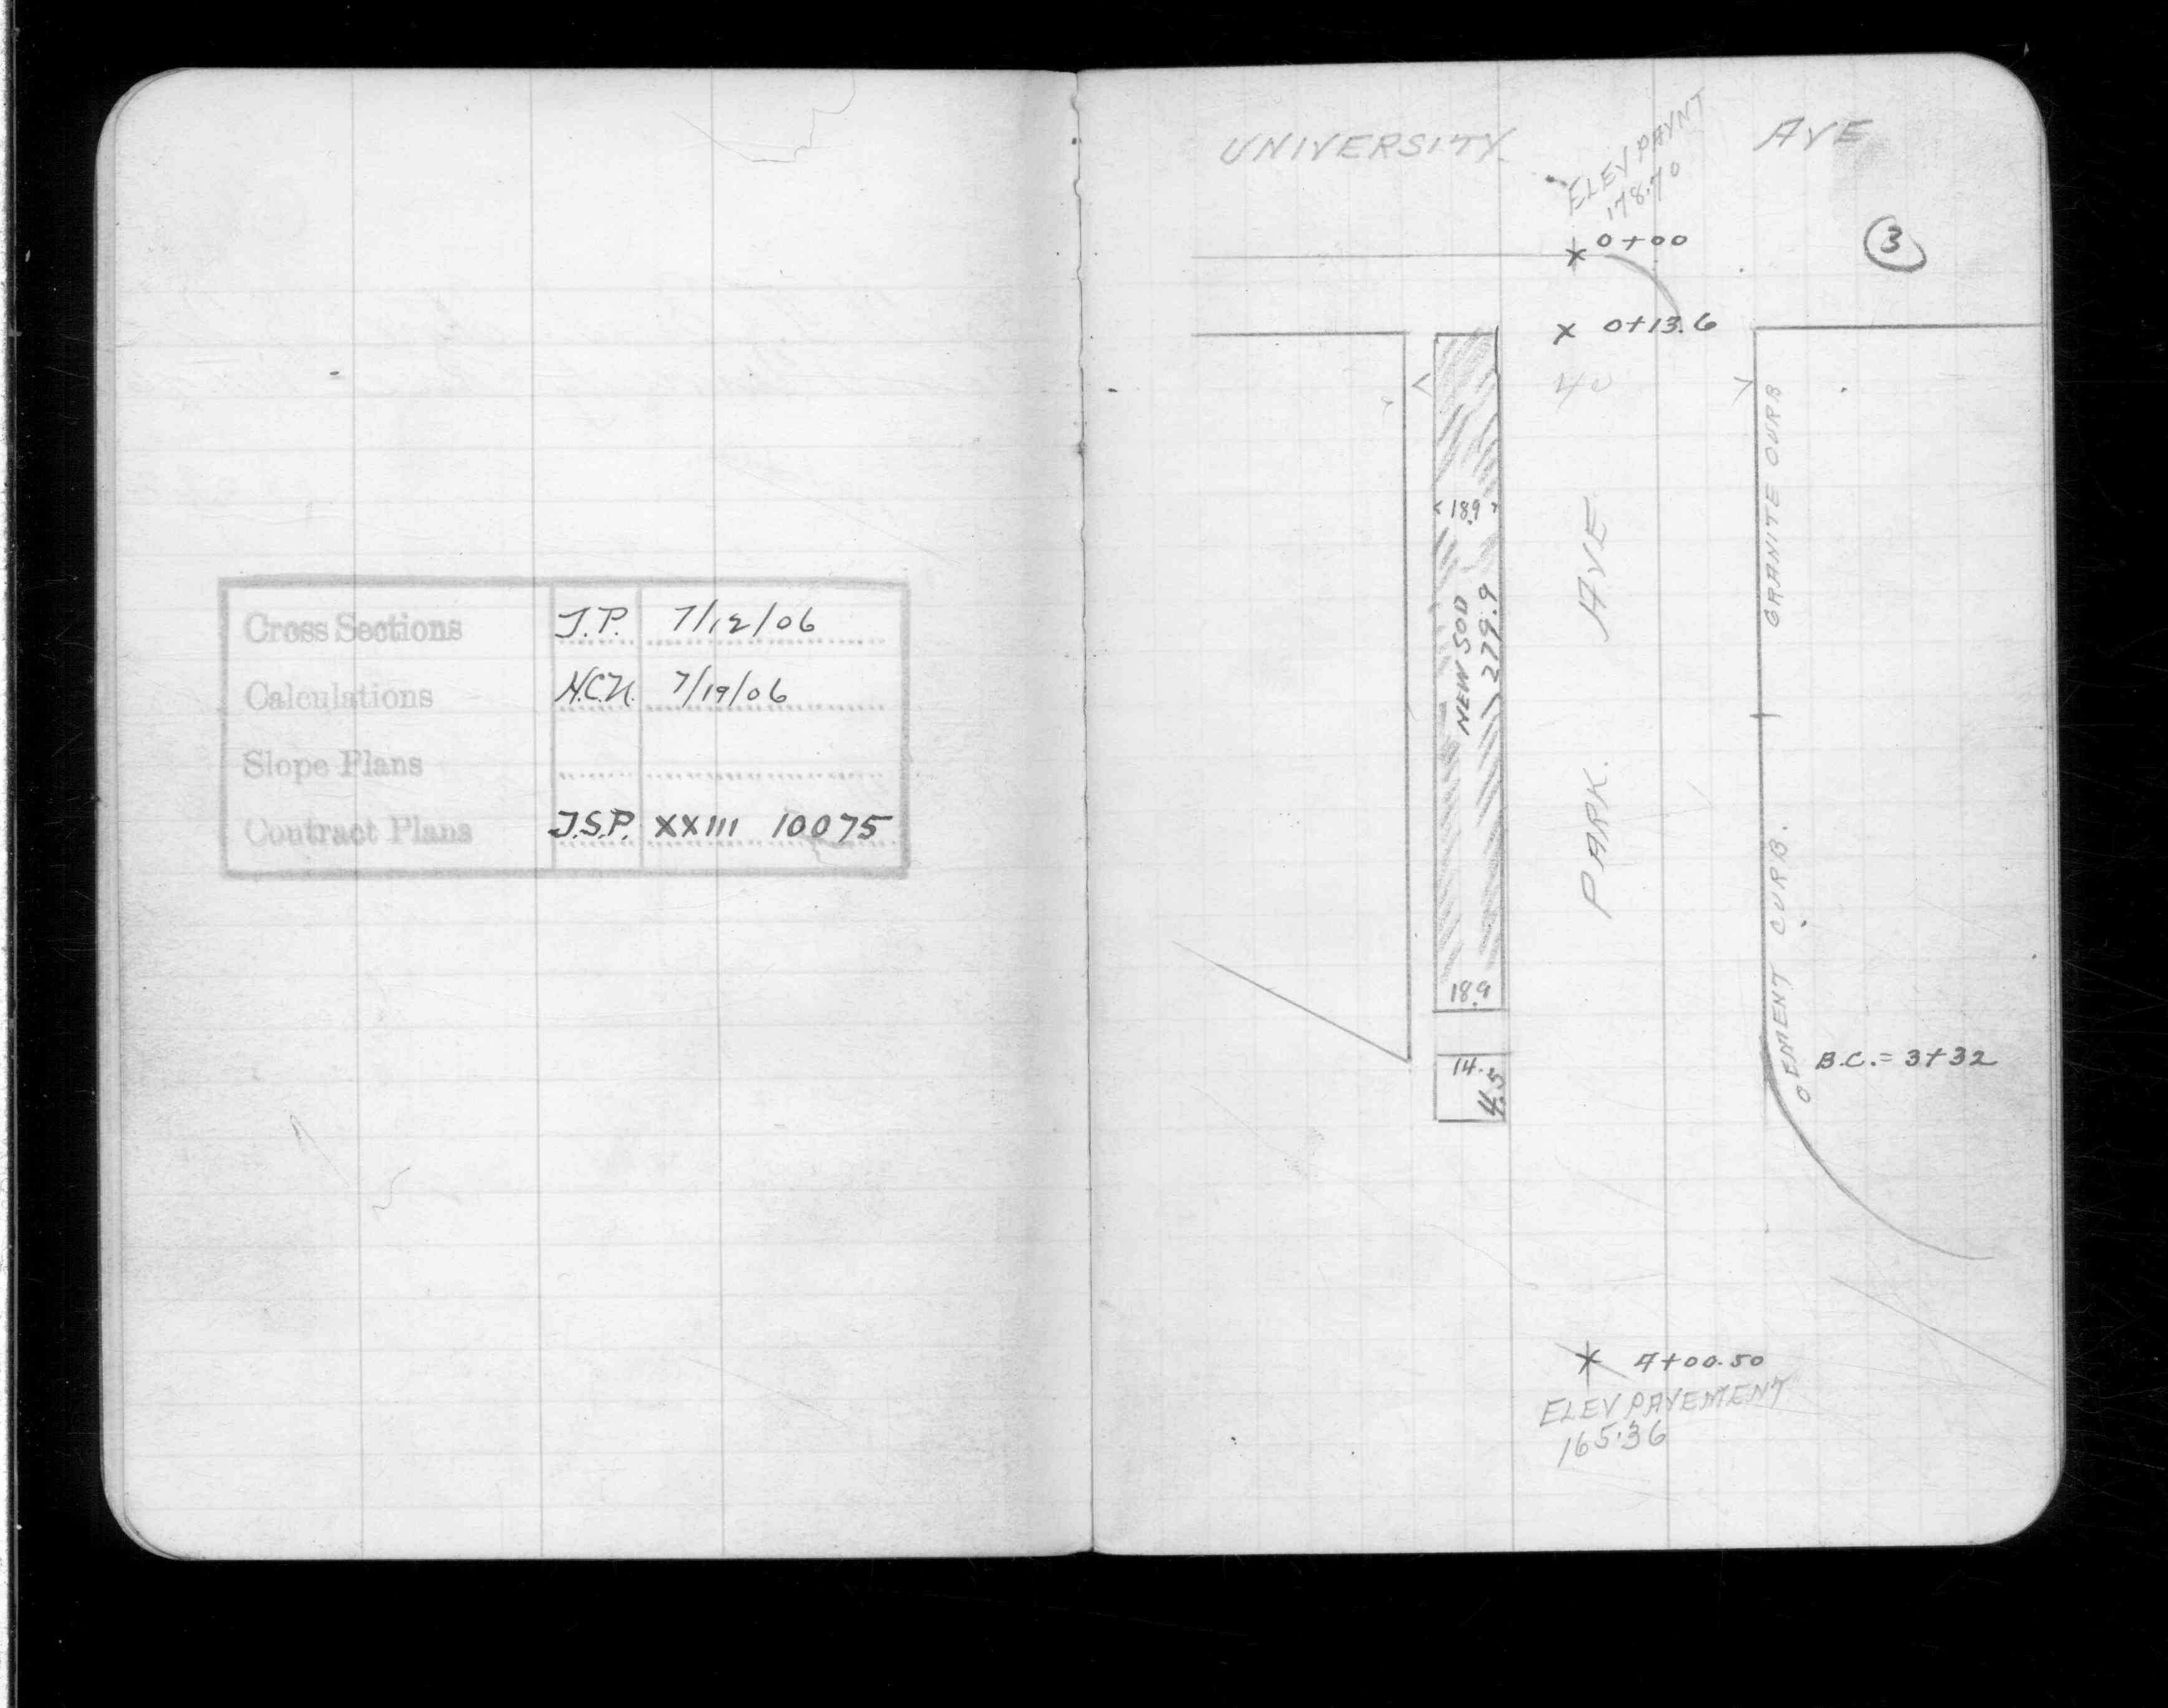 Cross Sections J.P. 7/12/06
Calculations H.C.N. 7/19/06
Slope Plans
Contract Plans J.S.P. XXIII 10075
UNIVERSITY AVE
ELEV PAVNT
178.70
0+00
3
0+13.6
40
GRANITE CURB
18.9
NEW SOD
279.9
PARK. AVE
CEMENT CURB.
18.9
14.
4.5
B.C. = 3+32
4+00.50
ELEV PAVEMENT
165.36